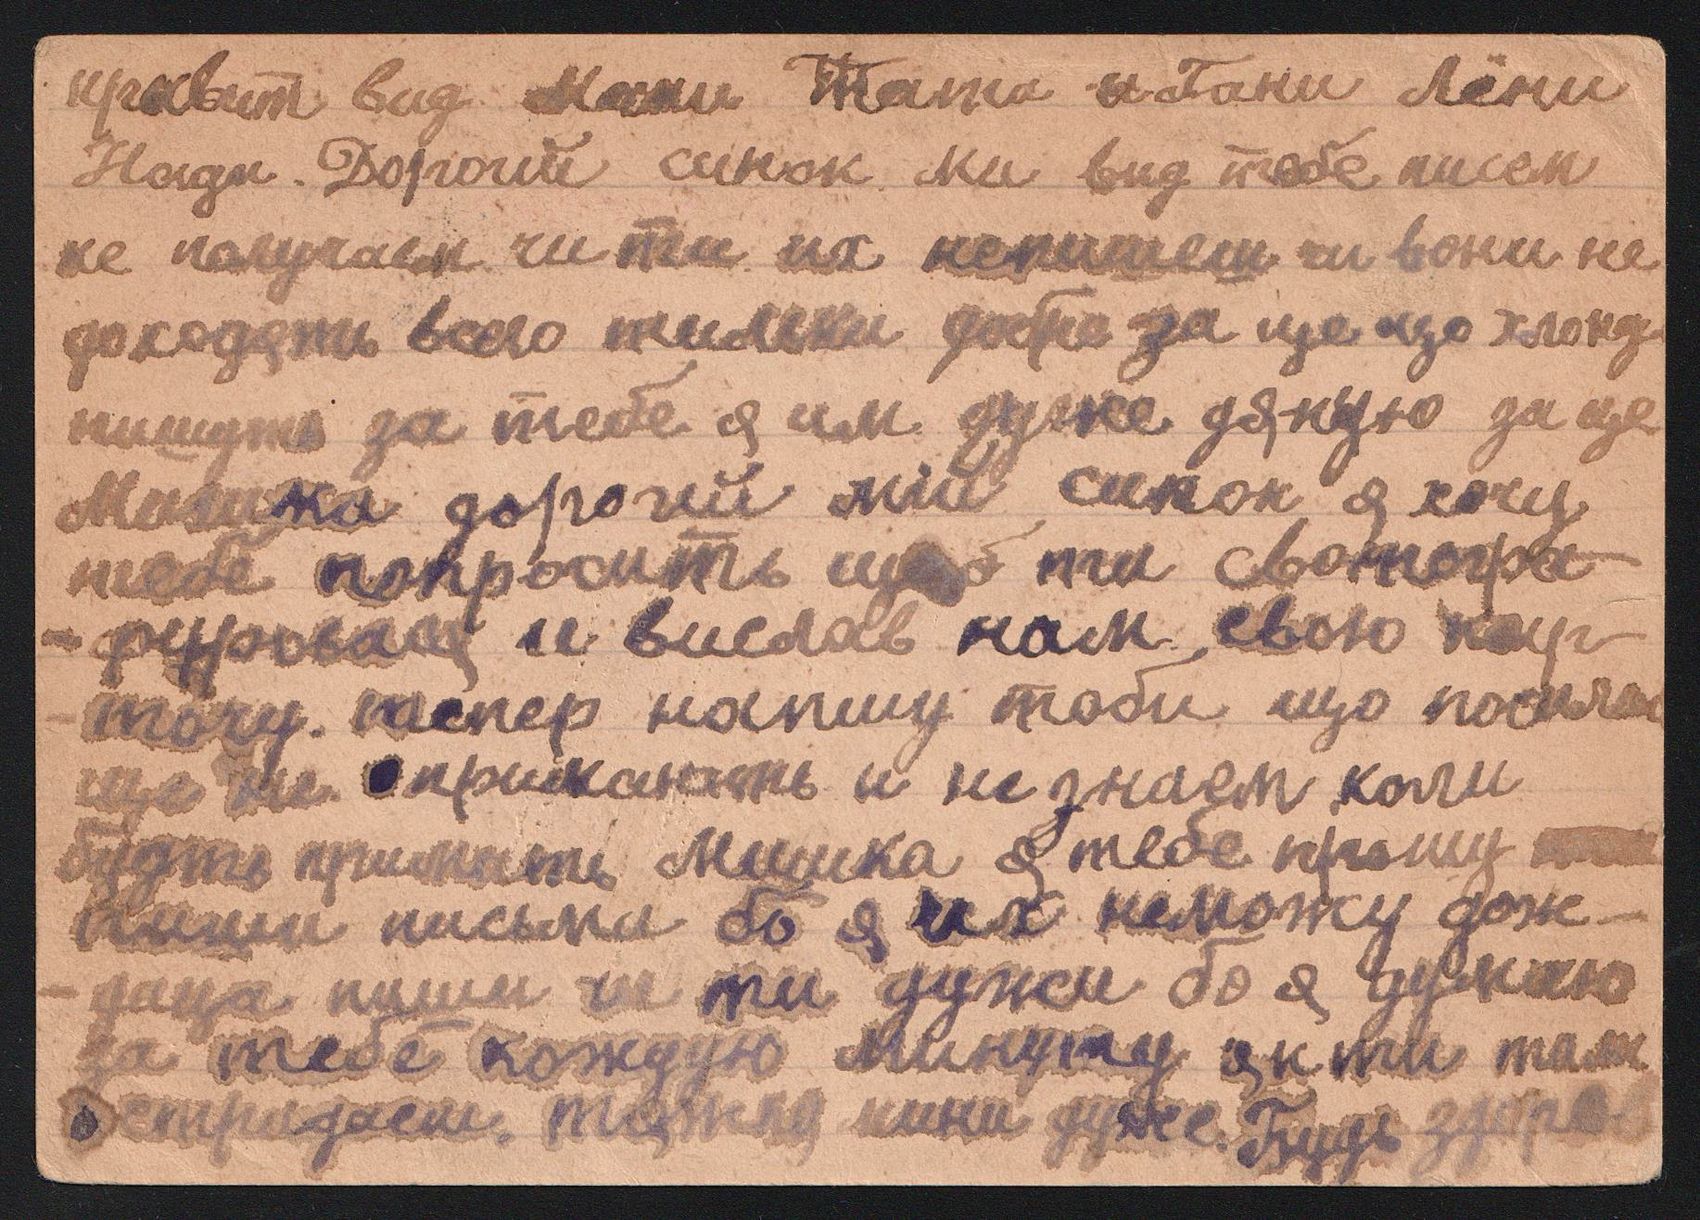 привит вид Мами Тата и Гани Лёни
Нади. Дорогий синок ми вид тебе писем
не получаем чи ти их непишеш чи вони не
доходять всего тильки добре за ще що хлопц
пишуть за тебе я им дуже дякую за ще
Мишка дорогий мій синок я хочу
тебе попросить щоб ти сватогра-
-фировац и вислав нам свою кар-
точу. тепер напишу тоби що посилки
ще не прижають и не знаем коли
будть примать Мишка я тебе прошу
пиши письма бо я их неможу дож-
-даца пиши чи ти дужи бо я думаю
за тебе кождую минуту як ти там
страдаеш. тяжко мини дуже. Будь здоров